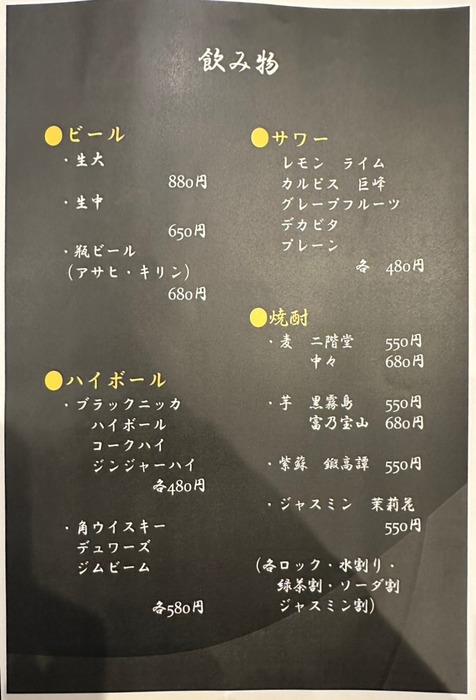 飲み物
●ビール
・生大
880円
・生中
650円
・瓶ビール
（アサヒ・キリン）
680円
●ハイボール
・ブラックニッカ
ハイボール
コークハイ
ジンジャーハイ
各480円
・角ウイスキー
デュワーズ
ジムビーム
各580円
●サワー
レモン　ライム
カルピス　巨峰
グレープフルーツ
デカビタ
プレーン
各　480円
●焼酎
・麦　二階堂　550円
中々　680円
・芋　黒霧島　550円
富乃宝山　680円
・紫蘇　鍛高譚　550円
・ジャスミン　茉莉花
550円
（各ロック・水割り・
緑茶割・ソーダ割
ジャスミン割）